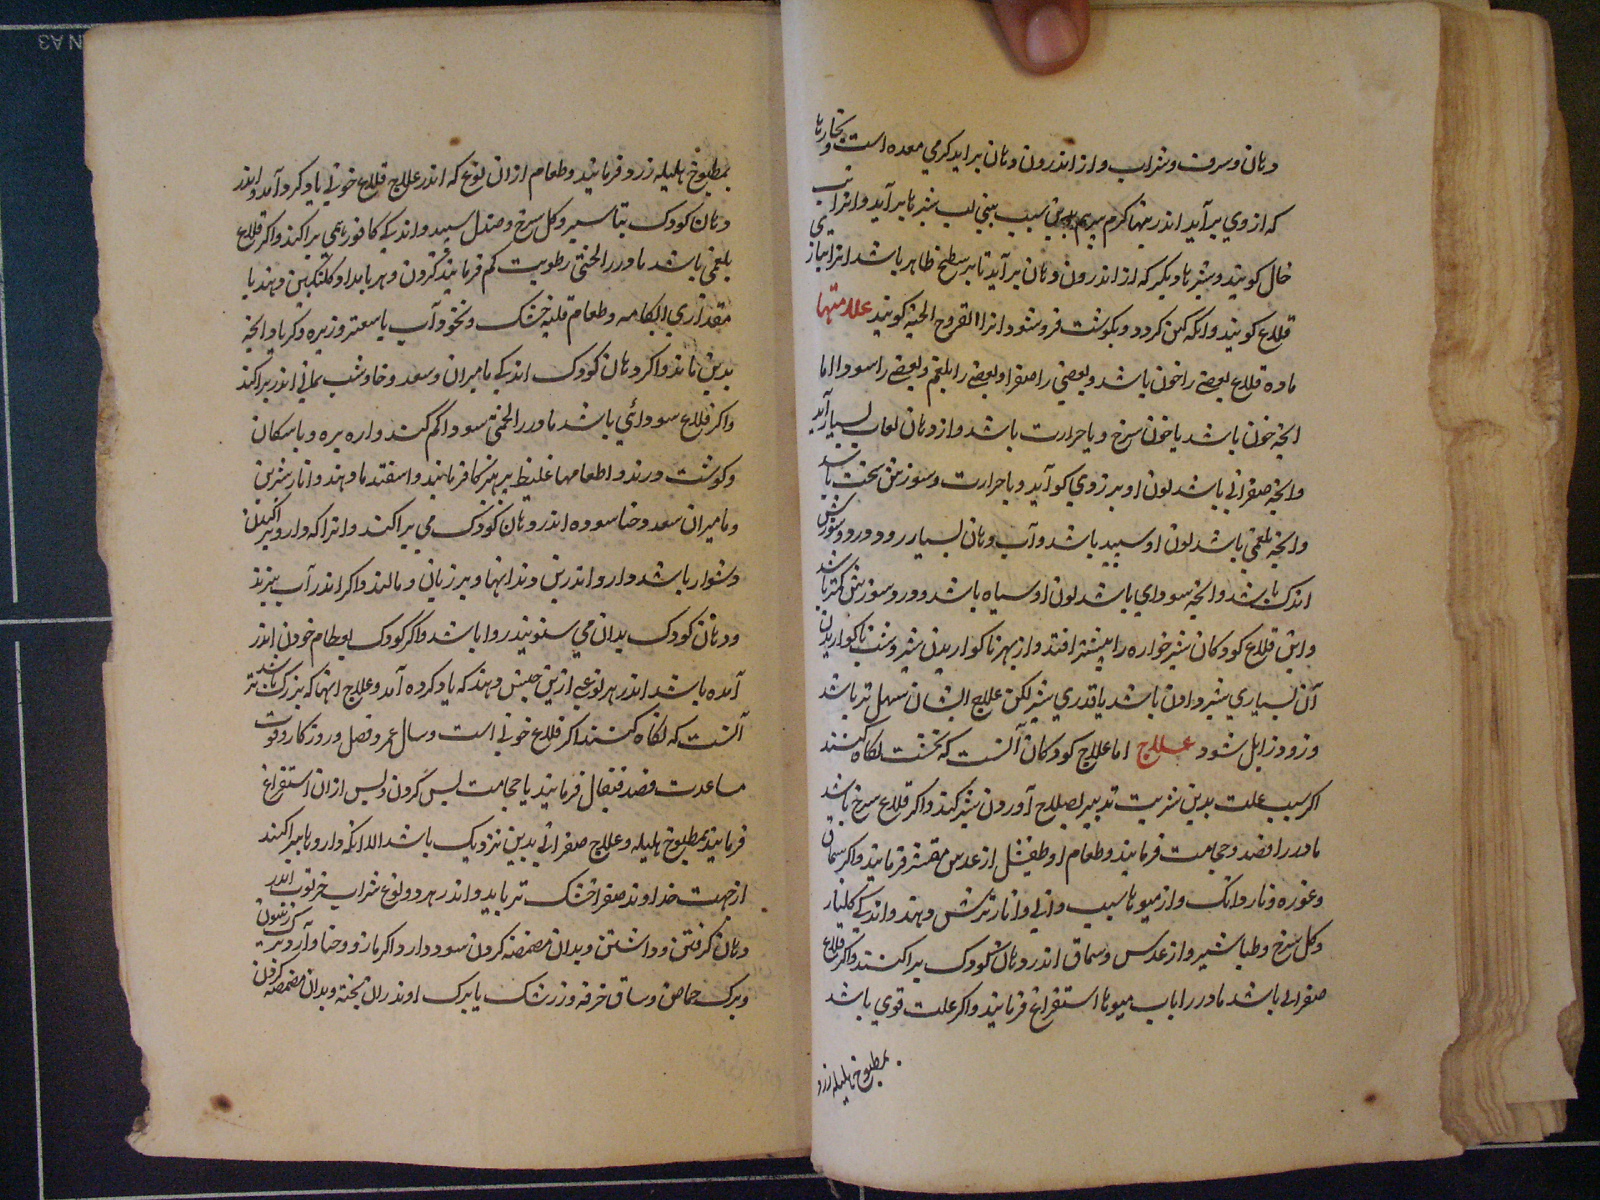 دهان وسرفه وشراب واز اندرون دهان برايد كرمي معده است وبخارها
كه ازوي برآيد اندر تنها كرم سبب بيني لب بثرها برآيد وانرا تب
خال كويند وبثرها ديكر كه از اندرون دهان برآيد تا بر سطح ظاهر باشد انرا بتازي
قلاع كويند وانكه كهن كردد وبكوشت فروشود انرا القروح الخبيثه كويند علامتها
ماده قلاع بعضي را خون باشد وبعضي را صفرا وبعضي را بلغم وبعضي را سودا اما
انچه خون باشد با خون سرخ وبا حرارت باشد واز دهان لعاب بسيار آيد
وانچه صفرائي باشد لون او بزردي كرايد وبا حرارت وسوزش سخت باشد
وانچه بلغمي باشد لون او سپيد باشد وآب دهان بسيار رود ودرد وسوزش
اندك باشد وانچه سوداي باشد لون او سياه باشد ودرد وسوزش كمتر باشد
واين قلاع كودكان شيرخواره را بيشتر افتد واز بهر ناكواريدن شير وسبب ناكواريدن
آن بسياري شير دادن باشد يا قدري شير لكن علاج ايشان سهل تر باشد
وزود زايل شود علاج اما علاج كودكان آنست كه نخست نكاه كنند
اكر سبب علت بدين شربت تدبير بصلاح آوردن شير كند واكر قلاع سرخ باشد
مادر را فصد وحجامت فرمايند وطعام او طفشل از عدس مقشر فرمايند واكر سماق
وغوره وناردانك واز ميوها سيب وآبي وانار ترش دهند واندكي كلنار
وكل سرخ وطباشير واز عدس وسماق اندر دهان كودك پراكنند واكر قلاع
صفرائي باشد مادر را باب ميوها استفراغ فرمايند واكر علت قوي باشد
بمطبوخ هليله زرد
بمطبوخ هليله زرد فرمايند وطعام ازان نوع كه اندر علاج قلاع خوني ياد كرده آمد واندر
دهان كودك تباشير وكل سرخ وصندل سپيد واندكي كافور همي پراكند واكر قلاع
بلغمي باشد مادر را لختي رطوبت كم فرمايند كردن وهر بامداد كلنكبين دهند با
مقداري ابكامه وطعام قليه خشك ونخوداب با سعتر وزيره وكرويا وانچه
بدين ماند واكر دهان كودك اندكي ماميران وسعد وخاوشب يماني اندر پراكند
واكر قلاع سودائي باشد مادر را لختي سودا كم كنند
وكوشت وطعامها غليظ پرهيز فرمايند واسفند ما دهند وانار شيرين
وماميران سعد وحنا سوده اندر دهان كودك مي پراكند وانرا كه دارو پراكندن
دشوار باشد دارو اندر بن دندانها وبر زبان ومالند واكر اندر آب پزند
ودهان كودك بدان مي شويند روا باشد واكر كودك بطعام خوردن اندر
آمده باشد اندر هر نوعي ازين جنس دهند كه ياد كرده آمد وعلاج انها كه بزرك تر باشد
آنست كه نكاه كنند اكر قلاع خوني است وسال عمر وفصل وروزكار وقوت
مساعدت فصد قيفال فرمايند يا حجامت پس كردن وپس ازان استفراغ
فرمايند بمطبوخ هليله وعلاج صفرائي بدين نزديك باشد الا انكه داروها پراكند
از جهت خداوند صفرا خشك تر بايد واندر هر دو نوع شراب خرنوب اندر
دهان كرفتن وداشتن وبدان مضمضه كردن سود دارد اكر مازو وحنا وآرد
وبرك حماض وساق خرفه وزرشك با برك او اندر ان پخته وبدان مضمضه كردن